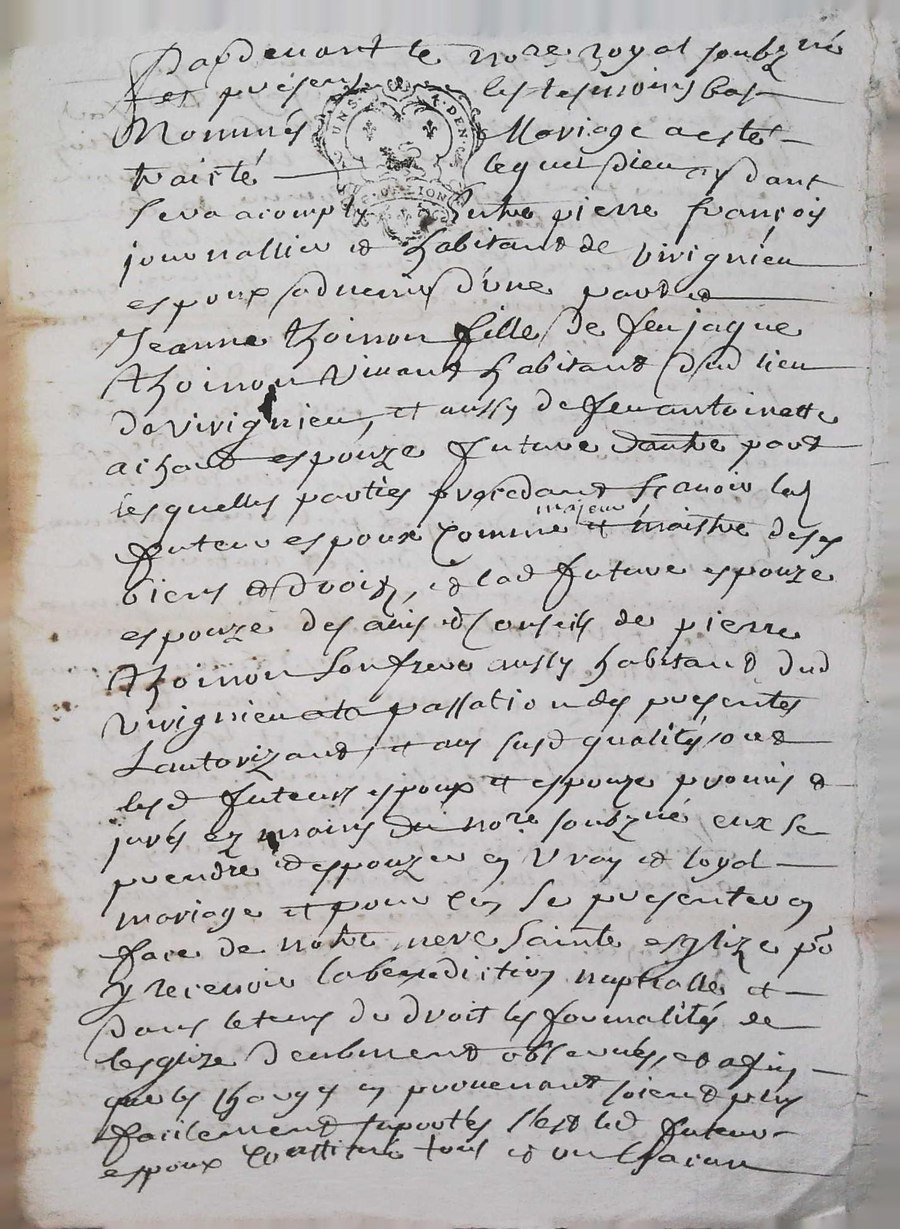 Pardevant le nore royal soubzné
et présent les tesmoins bas
Nommés Mariage a esté
traicté lequel Dieu aydant
Sera acomply Entre pierre françois
journallier et habitant de vivignieu
espoux advenir d'une part et
Jeanne thoinon fille de feu jaque
thoinon vivant habitant dud lieu
de vivignieu, et aussy de feu antoinette
achard espouze future dautre part
lesquelles parties procedant scavoir led
majeur
futeur espoux Comme et maistre de ses
biens et droitz, et lad future espouze
espouze des avis et Conseils de pierre
thoinon son frere aussy habitand dud
vivignieu a la passation des presentes
Lautorizant, et aux susd qualités ont
lesd futeurs espoux et espouze promis et
jurés ez mains du nore soubzné eux se
prendre et espouzer en vray et loyal
mariage et pour ce se presenter en
face de notre mere Sainte esglize po
y recevoir la benediction nuptialle et
dans le tems du droit les formalités de
lesglize deubment observées, et afin
que les Charges en provenant soient plus
facilement suportés s'est led futeur
espoux Constitué tous et un Chacun
UNS A.DENI
LION